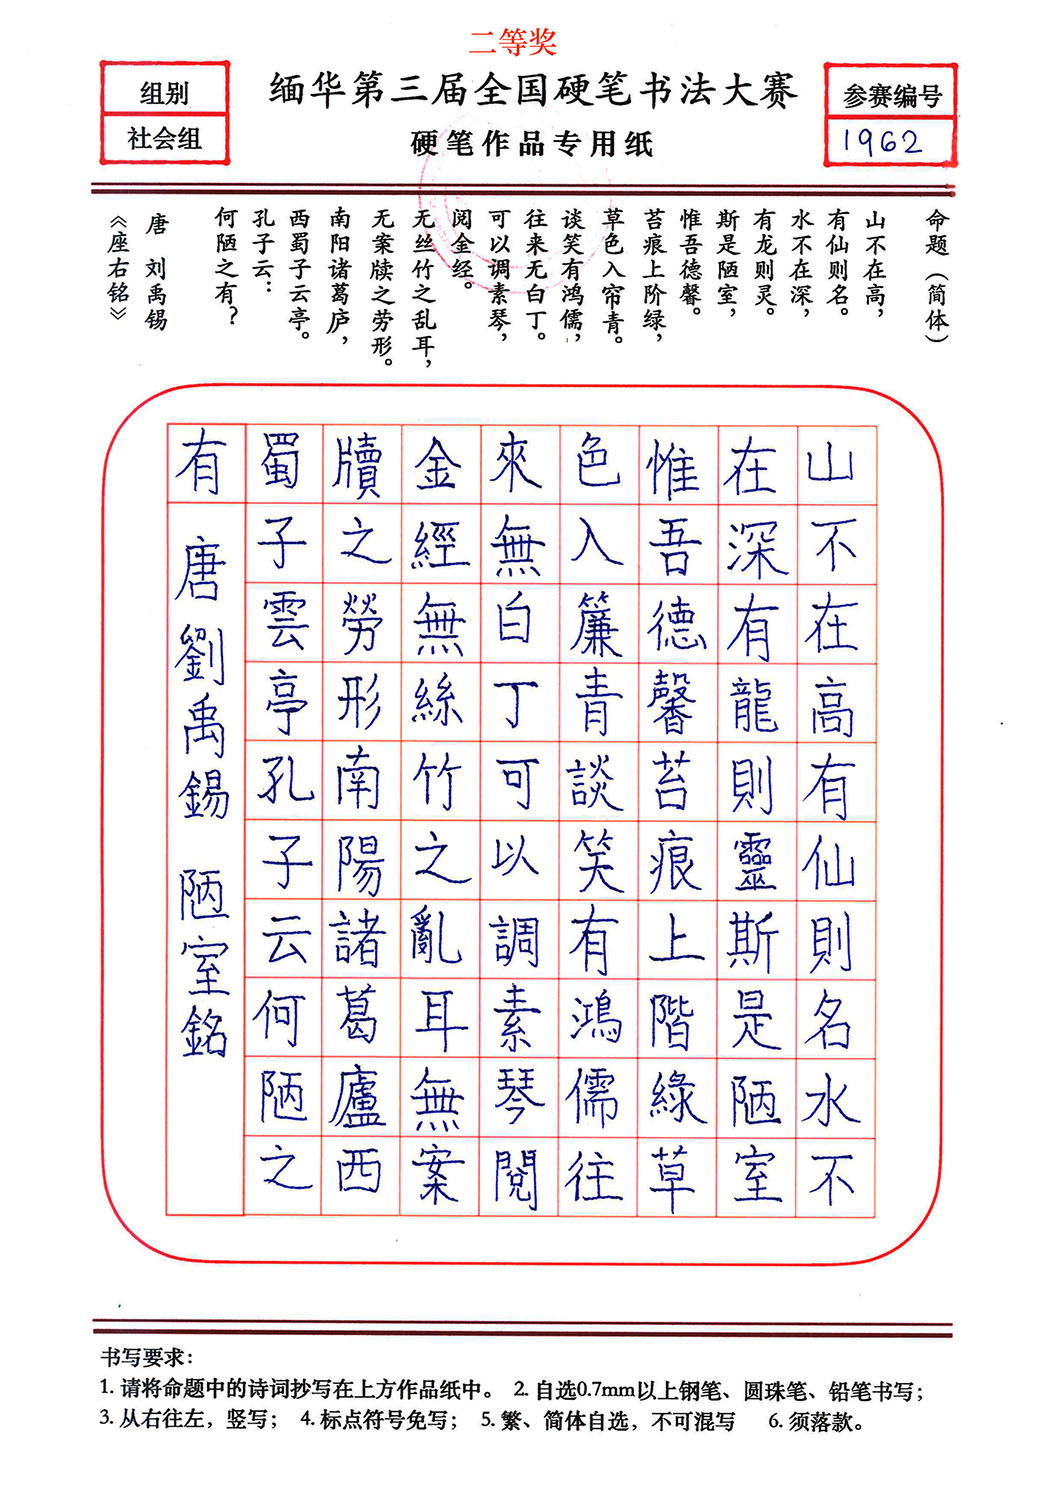 二等奖
组别
社会组
缅华第三届全国硬笔书法大赛
硬笔作品专用纸
参赛编号
1962
命题（简体）
山不在高，
有仙则名。
水不在深，
有龙则灵。
斯是陋室，
惟吾德馨。
苔痕上阶绿，
草色入帘青。
谈笑有鸿儒，
往来无白丁。
可以调素琴，
阅金经。
无丝竹之乱耳，
无案牍之劳形。
南阳诸葛庐，
西蜀子云亭。
孔子云：
何陋之有？
唐 刘禹锡
《座右铭》
山不在高有仙則名水不
在深有龍則靈斯是陋室
惟吾德馨苔痕上階綠草
色入簾青談笑有鴻儒往
來無白丁可以調素琴閱
金經無絲竹之亂耳無案
牘之勞形南陽諸葛廬西
蜀子雲亭孔子云何陋之
有 唐劉禹錫 陋室銘
书写要求：
1. 请将命题中的诗词抄写在上方作品纸中。 2. 自选0.7mm以上钢笔、圆珠笔、铅笔书写；
3. 从右往左，竖写； 4. 标点符号免写； 5. 繁、简体自选，不可混写 6. 须落款。